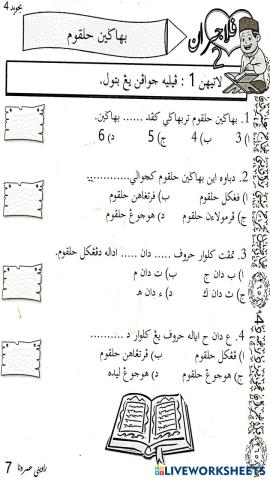 تجويد 4
ڤلاجرن
2
بهاݢين حلقوم
لاتيهن 1 : ڤيليه جواڤن يڠ بتول.
1. بهاݢين حلقوم تربهاݢي كڤد ...... بهاݢين.
ا) 3 ب) 4 ج) 5 د) 6
2. دباوه اين بهاݢين حلقوم كچوالي..............
ا) ڤڠكل حلقوم ب) ڤرتڠاهن حلقوم
ج) ڤرمولاءن حلقوم د) هوجوڠ حلقوم
3. تمڤت كلوار حروف ...... دان ...... اداله دڤڠكل حلقوم.
ا) ب دان ج ب) ت دان م
ج) ث دان ك د) ء دان ه
4. ع دان ح اياله حروف يڠ كلوار د ...........
ا) ڤڠكل حلقوم ب) ڤرتڠاهن حلقوم
ج) هوجوڠ حلقوم د) هوجوڠ ليده
7
LIVEWORKSHEETS